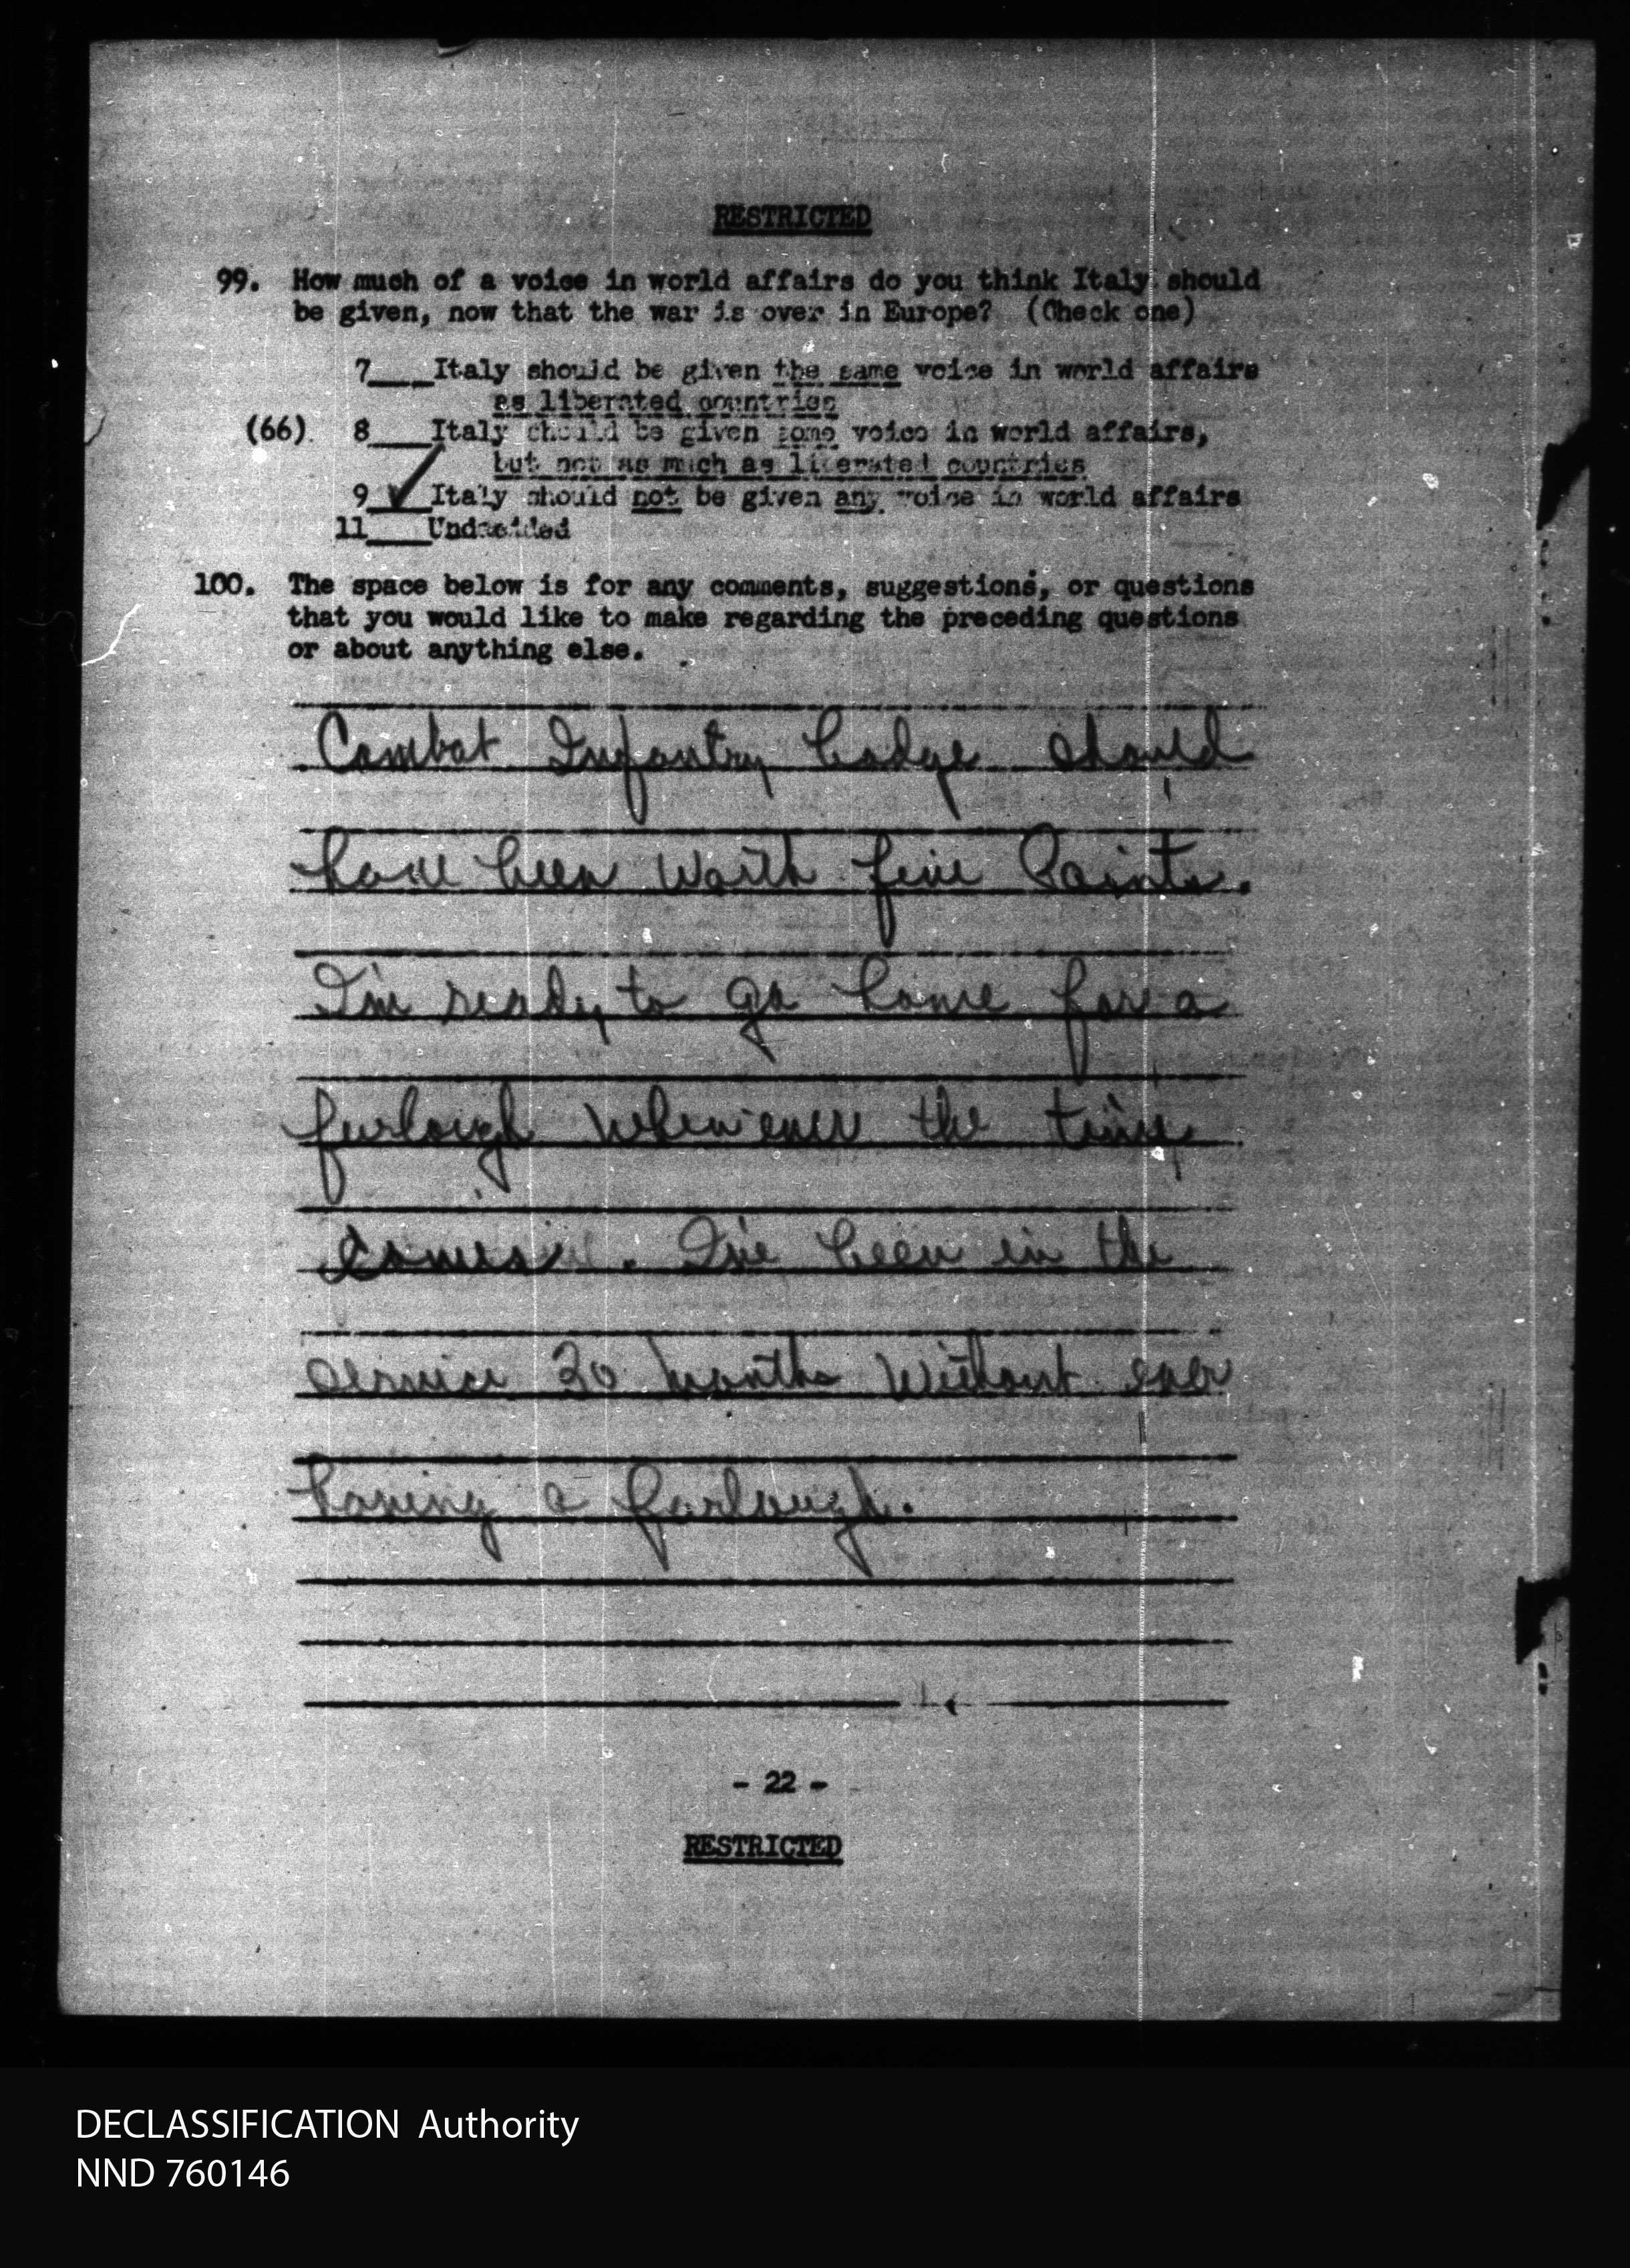 RESTRICTED
99. How much of a voice in world affairs do you think Italy should
be given, now that the war is over in Europe? (Check one)
7___Italy should be given the same voice in world affairs
as liberated countries
(66) 8___Italy should be given some voice in world affairs,
but not as much as liberated countries
9_✓_Italy should not be given any voice in world affairs
11___Undecided
100. The space below is for any comments, suggestions, or questions
that you would like to make regarding the preceding questions
or about anything else.
Combat Infantry badge should
have been worth five Points.
I'm ready to go home for a
furlough whenever the time
comes. I've been in the
service 30 months without ever
having a furlough.
- 22 -
RESTRICTED
DECLASSIFICATION Authority
NND 760146